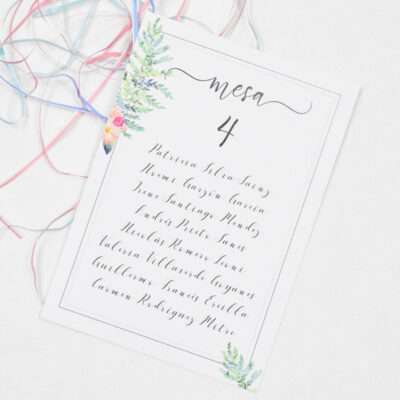 mesa
4
Patricia Silva Sainz
Noemi Garzón García
Irene Santiago Mendez
Andrés Prieto Sanes
Nicolás Romero Leoni
Valeria Villaverde Goganes
Guillermo Francis Ercilla
Carmen Rodríguez Mitre